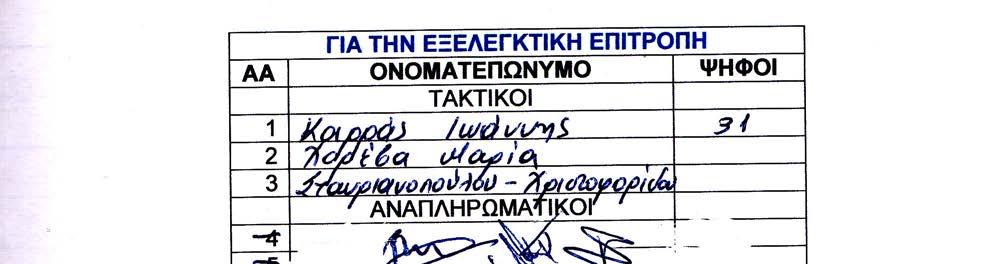 ΓΙΑ ΤΗΝ ΕΞΕΛΕΓΚΤΙΚΗ ΕΠΙΤΡΟΠΗ
ΑΑ ΟΝΟΜΑΤΕΠΩΝΥΜΟ ΨΗΦΟΙ
ΤΑΚΤΙΚΟΙ
1 Καρράς Ιωάννης 31
2 Χαρέβα Μαρία
3 Σταυριανοπούλου - Χριστοφορίδου
ΑΝΑΠΛΗΡΩΜΑΤΙΚΟΙ
4
5